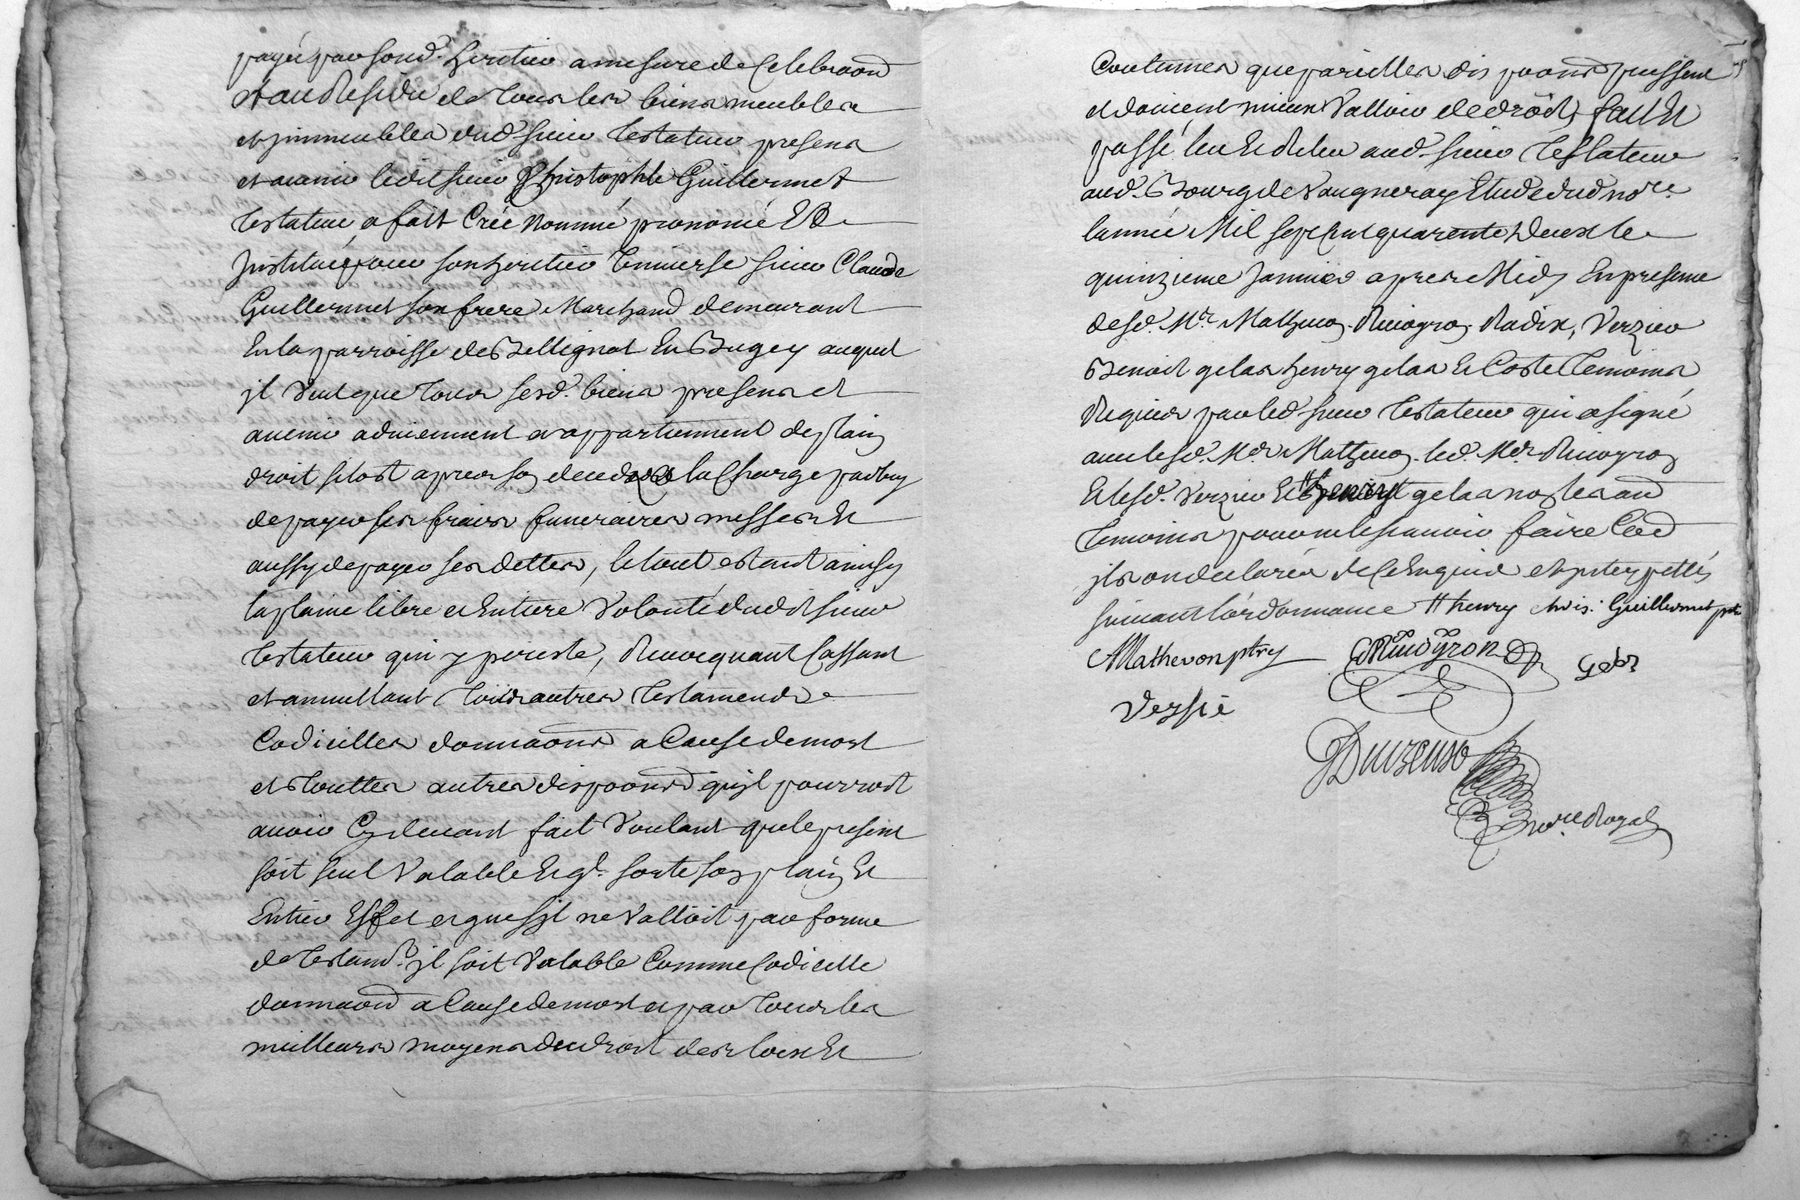 payé par sond. heritier a mesure de Celebraon
et au Residu de tous les biens meubles
et jmmeubles dud sieur testateur presens
et avenir ledit sieur Christophle Guillermet
testateur a fait Créé Nommé prononcé Et
jnstitué pour son heritier universel sieur Claude
Guillermet son frere Marchand demeurant
En la parroisse de Bellignat En Bugey auquel
jl Veut que tous sesd. biens presens et
avenir adviennent et appartiennent de plain
droit sitost apres son deceds a la Charge par luy
de payer ses fraix funeraires messes Et
aussy de payer ses dettes, le tout estant ainsy
la plaine libre et Entiere Volonté dudit sieur
testateur qui y persiste, Revocquant Cassant
et annullant tous autres testaments
Codicilles donnaons a Cause de mort
et touttes autres dispoons qu'jl pourroit
avoir Cy devant fait Voulant que le present
soit seul Valable Et ql. sorte son plain Et
Entier Effet et que s'jl ne Valloit par forme
de testamt. jl soit Valable Comme Codicille
donnaon a Cause de mort et par tous les
meilleurs moyens du droit des loix Et
Coutumes que pareilles dispoons puissent
et doivent mieux Valloir de droit, fait Et
passé leu Et Releu aud. sieur testateur
aud. Bourg de Vaugneray Etude dud nore.
l'année Mil sept Cent quarente deux le
quinzieme Janvier apres Midy En presence
desd. Mr. Mathevon. Rivoyron. Radix, Verzier
Benoit gelas henry gelas Et Coste temoins
Requis par led sieur testateur qui a signé
avec lesd. Mr. Mathevon. led. Mr. Rivoyron
Et lesd. Verzier Et henry gelas non les aud
temoins pour ne le scavoir faire Co[mme]
jls ont declarés de Ce Enquis et jnterpellés
suivant l'ordonnance # henry chris. Guillermet ptre
A Mathevon ptre C Rivoyron gelas
Versié
Duizeuso
nore Royal